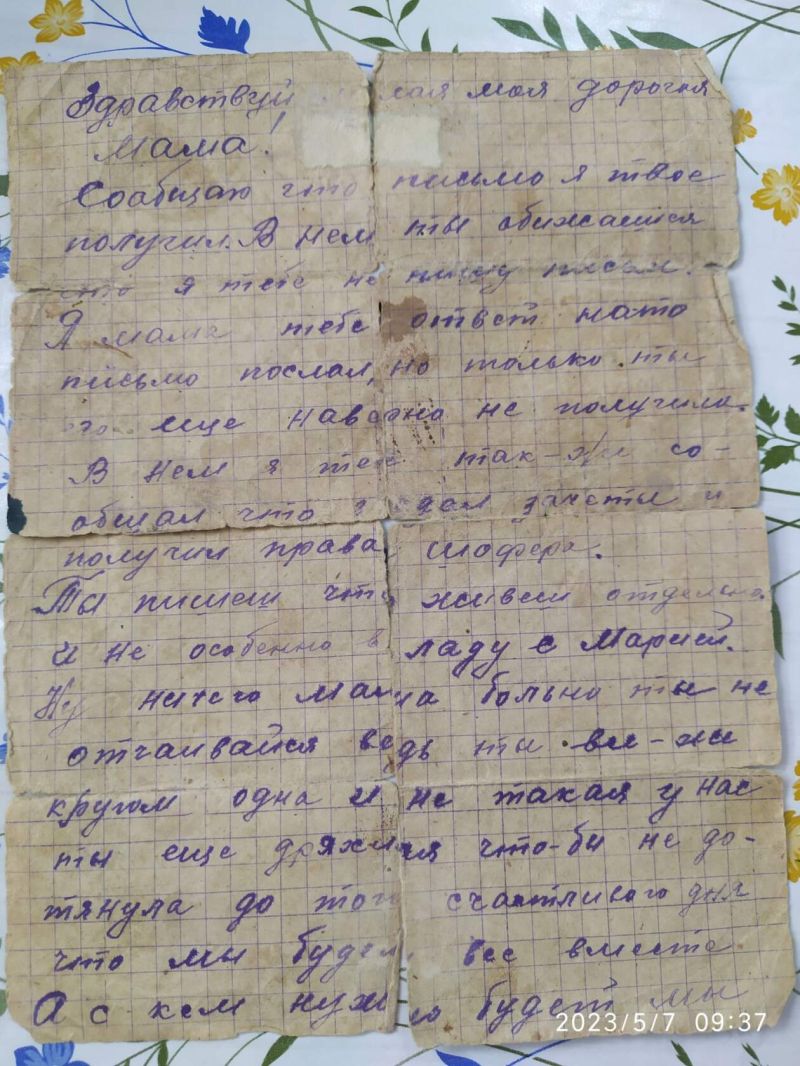 Здравствуй моя дорогая
Мама!
Сообщаю что письмо я твое
получил. В нем ты обижаешся
что я тебе не пишу писем.
Я мама тебе ответ на то
письмо послал, но только ты
его еще наверно не получила.
В нем я тебе так-же со-
общал что я сдал зачеты и
получил права шофера.
Ты пишеш что живеш отдельно
и не особенно в ладу с Марией.
Ну ничего мама больно ты не
отчаивайся ведь ты все-же
кругом одна и не такая у нас
ты еще дряхлая что-бы не до-
тянула до того счастливого дня
что мы будем все вместе
А с кем нужно будет мы
2023/5/7 09:37